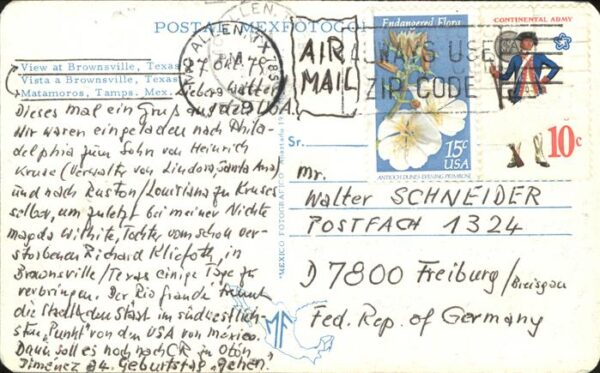 POSTAL MEXFOTOCO
View at Brownsville, Texas
Vista a Brownsville, Texas
Matamoros, Tamps. Mex.
McALLEN, TX 785
PM
1979
AIR MAIL
ALWAYS USE
ZIP CODE
Endangered Flora
15c
USA
ANTIOCH DUNES EVENING PRIMROSE
CONTINENTAL ARMY
10c
Lieber Walter
Dieses mal ein Gruß aus den USA.
Wir waren eingeladen nach Phila-
delphia zum Sohn von Heinrich
Kruse (Verwalter von Lindora, Santa Ana)
und nach Ruston/Louisiana zu Kruses
selber, um zuletzt bei meiner Nichte
Magda Wilhite, Tochter vom schon ver-
storbenen Richard Kliefoth, in
Brownsville/Texas einige Tage zu
verbringen. Der Rio Grande trennt
die Stadt am südöstlich-
sten "Punkt" von den USA von México.
Dann soll es noch nach CR zu
Jiménez 24. Geburtstag gehen.
"MEXICO FOTOGRAFICO"
MF
Sr.
Mr.
Walter SCHNEIDER
POSTFACH 1324
D 7800 Freiburg/Breisgau
Fed. Rep. of Germany